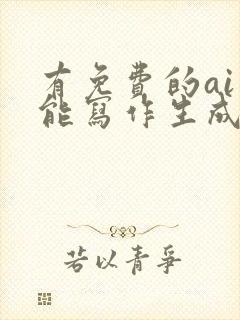 有免費的ai
能寫作生成
若以青爭